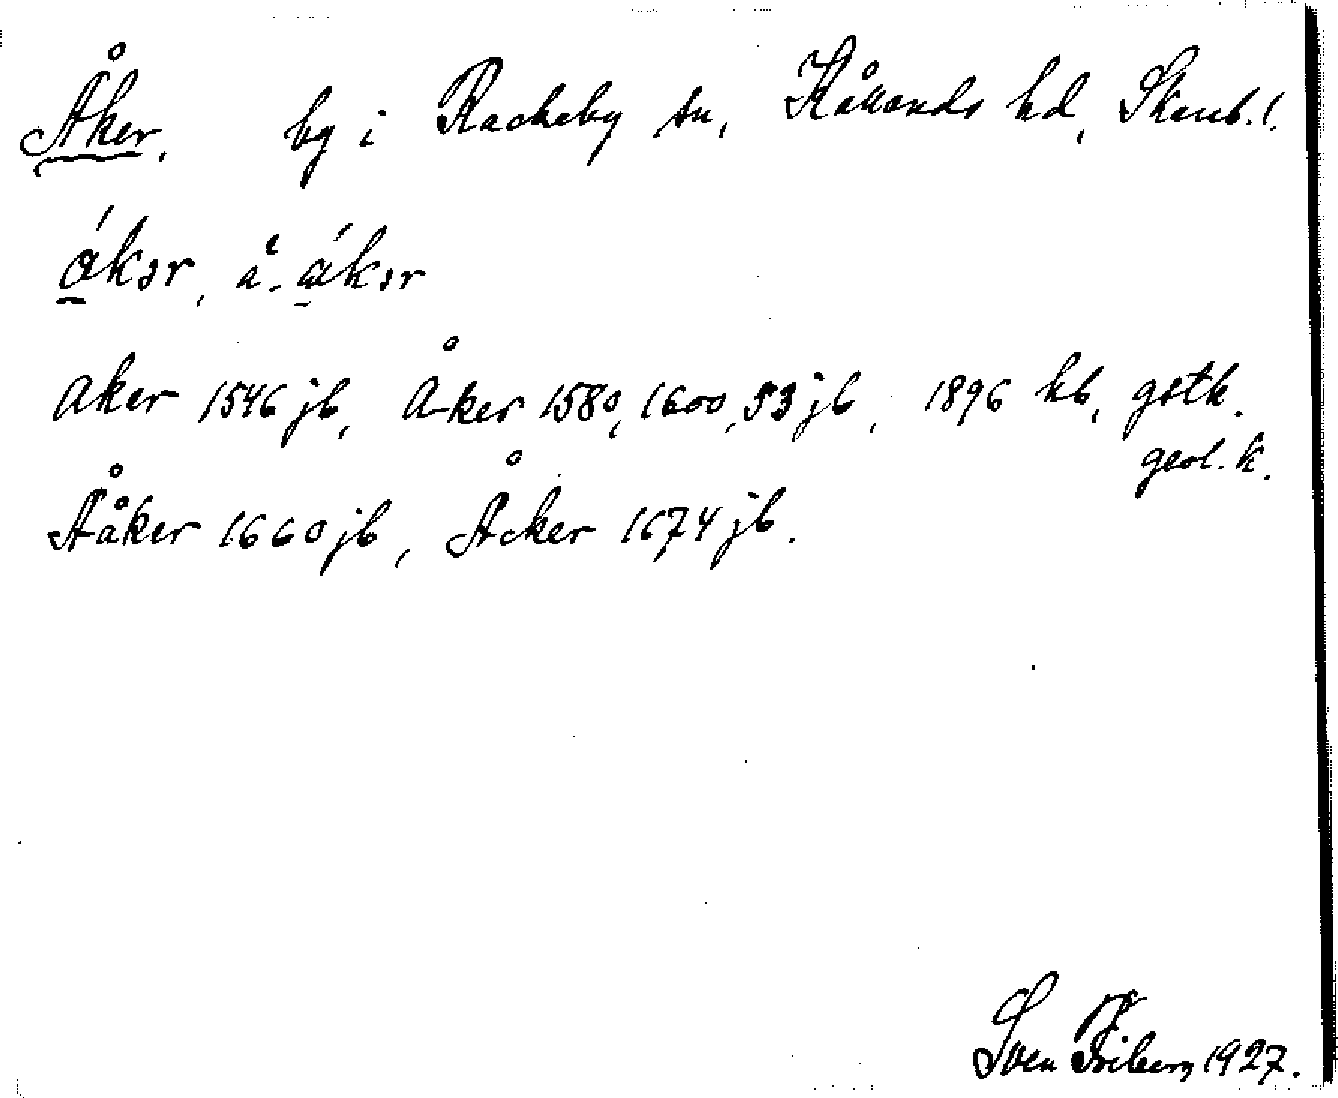 Åker, by i Rackeby sn, Kållands hd, Skarab. l.
ákər, å-ákər
Aker 1546 jb, Åker 1580, 1600, 53 jb, 1896 kb, gstk. geol. k.
Åáker 1660 jb, Åcker 1674 jb.
Sven Friberg 1927.